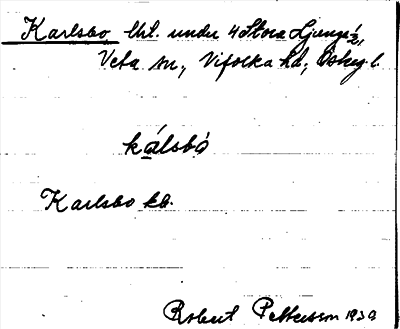 Karlsbo, lht. under 4 Stora Ljunga 2/1,
Veta sn, Vifolka hd, Östergl.
kálsbó
Karlsbo kb.
Robert Pettersson 1939